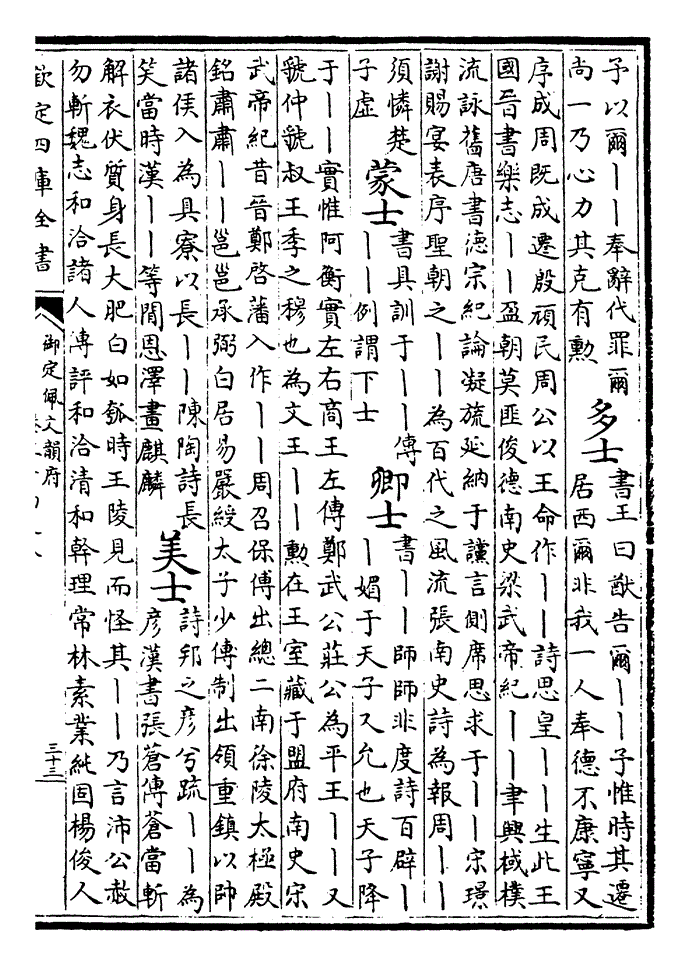 予以爾丨丨奉辭代罪爾
尚一乃心力其克有勲
多士
書王曰猷告爾丨丨予惟時其遷
居西爾非我一人奉德不康寧又
序成周既成遷殷頑民周公以王命作丨丨詩思皇丨丨生此王
國晉書樂志丨丨盈朝莫匪俊德南史梁武帝紀丨丨聿興棫樸
流詠舊唐書德宗紀論凝旒延納于讜言側席思求于丨丨宋璟
謝賜宴表序聖朝之丨丨為百代之風流張南史詩為報周丨丨
須憐楚
子虛
蒙士
書具訓于丨丨傳
丨丨例謂下士
卿士
書丨丨師師非度詩百辟丨
丨媚于天子又允也天子降
于丨丨實惟阿衡實左右商王左傳鄭武公莊公為平王丨丨又
虢仲虢叔王季之穆也為文王丨丨勲在王室藏于盟府南史宋
武帝紀昔晉鄭啓藩入作丨丨周召保傅出總二南徐陵太極殿
銘肅肅丨丨邕邕承弼白居易嚴綬太子少傅制出領重鎮以帥
諸侯入為具寮以長丨丨陳陶詩長
笑當時漢丨丨等閒恩澤畫麒麟
美士
詩邦之彥兮疏丨丨為
彥漢書張蒼傳蒼當斬
解衣伏質身長大肥白如瓠時王陵見而怪其丨丨乃言沛公赦
勿斬魏志和洽諸人傳評和洽清和幹理常林素業純固楊俊人
欽定四庫全書
御定佩文韻府
三十三